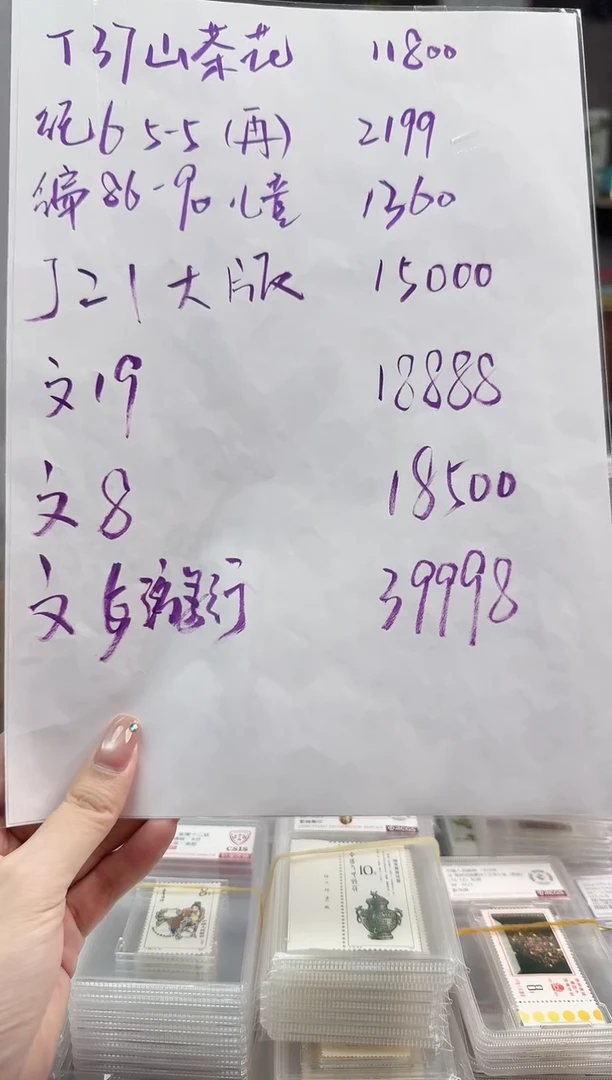 T37山茶花 11800
纪6 5-5(再) 2199
编86-90儿童 1360
J21大版 15000
文19 18888
文8 18500
文 39998
8
10
8